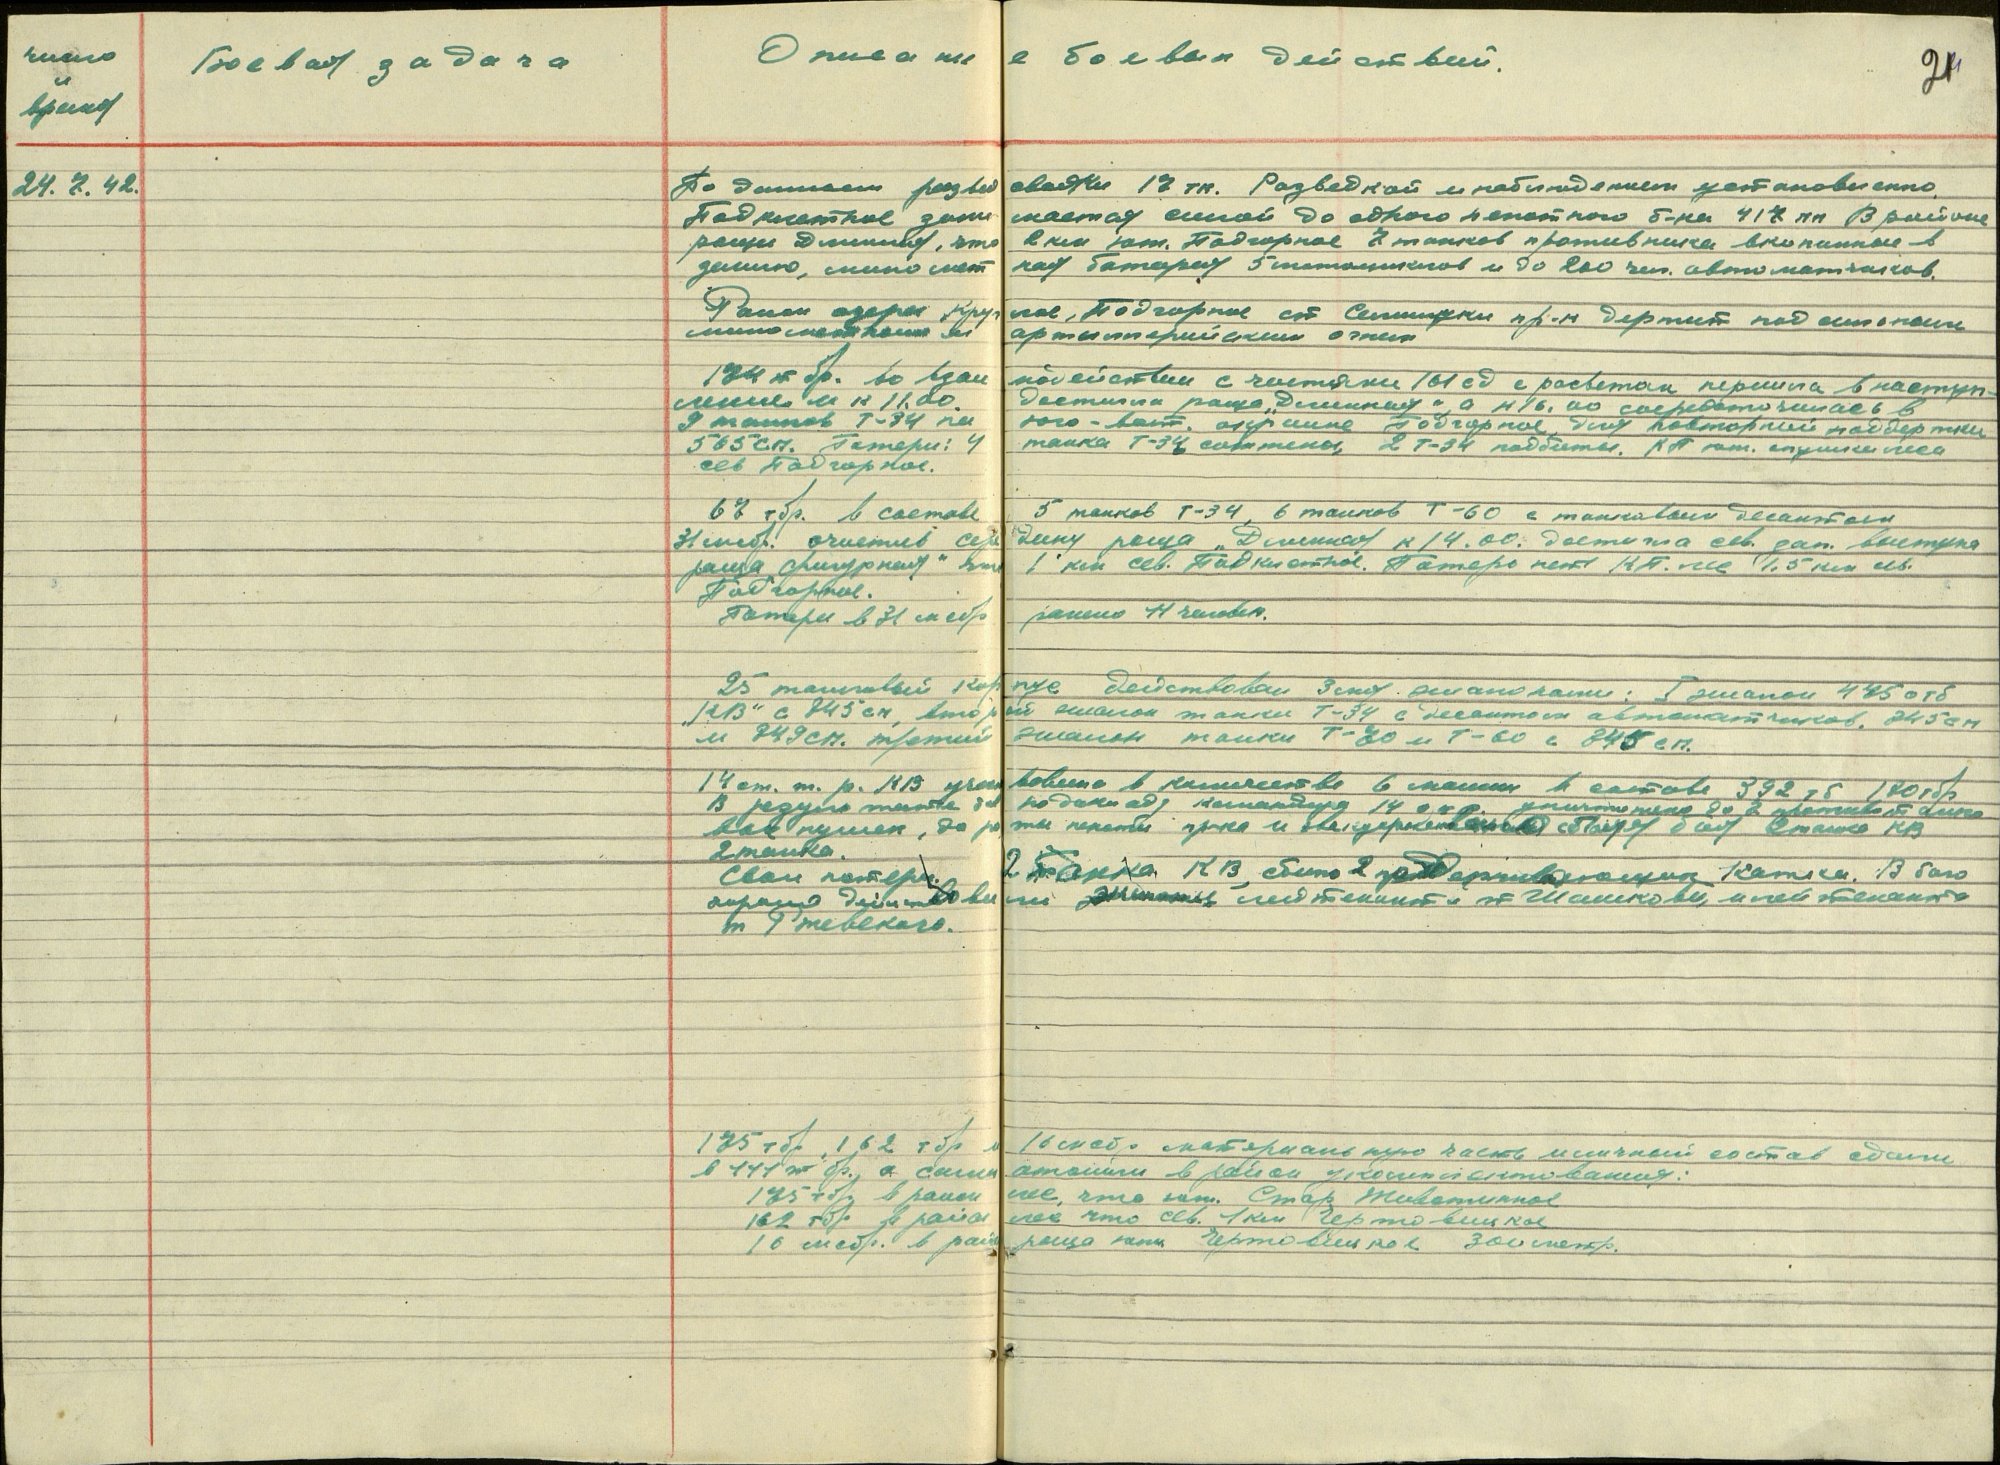 число
и
время
Боевая задача
Описание боевых действий.
21
24.7.42.
По данным разведсводки 17 тк. Разведкой и наблюдением установленно
Подклетное занимается силой до одного пехотного б-на 417 пп В районе
рощи Длинная, что 2 км юж. Подгорное 7 танков противника вкопанные в
землю, минометная батарея 5 мотоциклов и до 200 чел. автоматчиков.
Район озера Круглое, Подгорное ст Семилуки пр-к держит под сильным
минометным и артиллерийским огнем
174 тбр. во взаимодействии с частями 161 сд с рассветом перешла в наступ-
ление и к 11.00. достигла роща „Длинная", а к 16.00 сосредоточилась в
9 танков Т-34 на юго-вост. окраине Подгорное для повторной поддержки
565 сп. Потери: 4 танка Т-34 сожжены, 2 Т-34 подбиты. КП юж. опушки леса
сев Подгорное.
67 тбр. в составе 5 танков Т-34, 6 танков Т-60 с танковым десантом
31 мсбр. очистив середину роща „Длинная к 14.00. достигла сев. зап. выступа
роща фигурная" что 1 км сев. Подклетное. Потерь нет КП. 1,5 км св.
Подгорное.
Потери в 31 мсбр ранено 11 человек.
25 танковый корпус действовал 3мя эшалонами: I эшалон 475 отб
„КВ" с 845 сп, второй эшалон танки Т-34 с десантом автоматчиков. 845 сп
и 849 сп. третий эшалон танки Т-70 и Т-60 с 845 сп.
14 от. т. р. КВ в количестве 6 машин в составе 392 тб 170 тбр
В результате командира 14 уничтожено до 7 противотанко
вых пушек, до роты пехоты пр-ка и 2 танка КВ
2 танка.
Свои потери. 2 танка КВ, сбито 2 катка. В бою
хорошо действовали лейтенанта т Шашкова, и лейтенанта
т Ржевского.
175 тбр, 162 тбр и 16 мсбр материальную часть и личный состав сдали
в 111 тбр, а сами отошли в район укомплектования:
175 тбр в район что юж. Стар Животинное
162 тбр в район что сев. 1 км Чертовицкое
16 мсбр. в район роща юж Чертовицкое 300 метр.